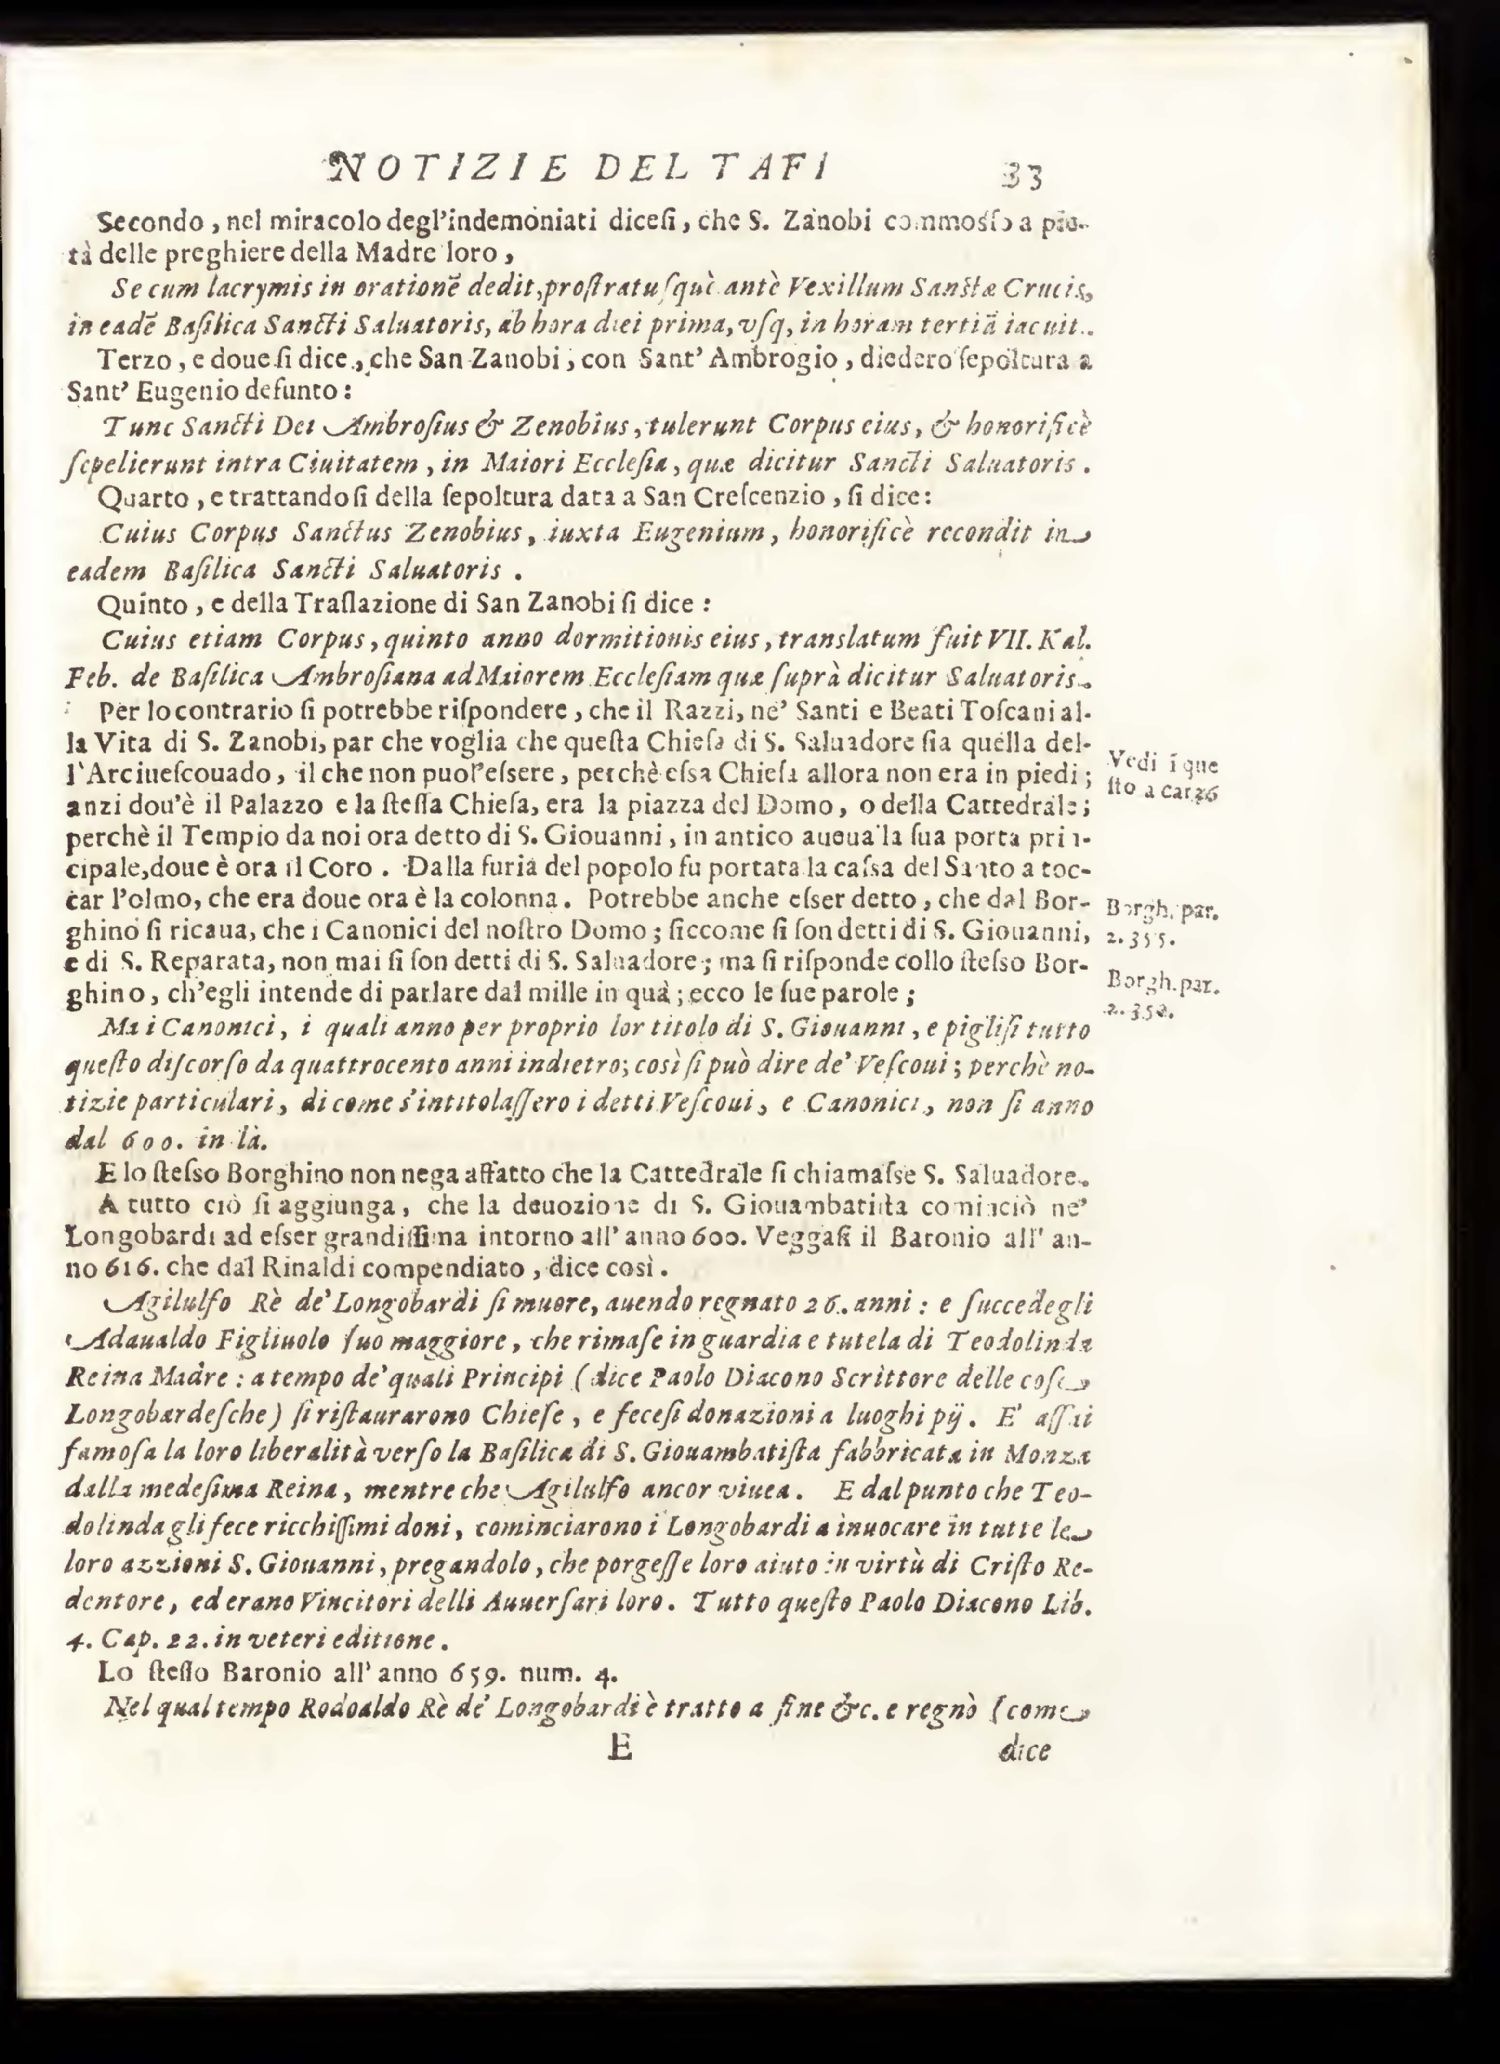 NOTIZIE DEL TAFI 33
Secondo, nel miracolo degl'indemoniati dicesi, che S. Zanobi commoſſo a pie-
tà delle preghiere della Madre loro,
Se cum lacrymis in orationē dedit, proſtratuſquè antè Vexillum Sanctæ Crucis,
in eadē Baſilica Sancti Saluatoris, ab hora diei prima, vſq, in horam tertiā iacuit.
Terzo, e doue ſi dice, che San Zanobi, con Sant' Ambrogio, diedero ſepoltura a
Sant' Eugenio defunto:
Tunc Sancti Dei Ambroſius & Zenobius, tulerunt Corpus eius, & honorificè
ſepelierunt intra Ciuitatem, in Maiori Eccleſia, quæ dicitur Sancti Saluatoris.
Quarto, e trattandoſi della ſepoltura data a San Creſcenzio, ſi dice:
Cuius Corpus Sanctus Zenobius, iuxta Eugenium, honorificè recondit in
eadem Baſilica Sancti Saluatoris.
Quinto, e della Traſlazione di San Zanobi ſi dice:
Cuius etiam Corpus, quinto anno dormitionis eius, translatum fuit VII. Kal.
Feb. de Baſilica Ambroſiana ad Maiorem Eccleſiam quæ ſuprà dicitur Saluatoris.
Per lo contrario ſi potrebbe riſpondere, che il Razzi, ne' Santi e Beati Toſcani al-
la Vita di S. Zanobi, par che voglia che queſta Chieſa di S. Saluadore ſia quella del-
l'Arciueſcouado, il che non puol'eſsere, perchè eſsa Chieſa allora non era in piedi;
anzi dou'è il Palazzo e la ſteſſa Chieſa, era la piazza del Domo, o della Cattedrale;
perchè il Tempio da noi ora detto di S. Giouanni, in antico aueua la ſua porta prin-
cipale, doue è ora il Coro. Dalla furia del popolo fu portata la caſsa del Santo a toc-
car l'olmo, che era doue ora è la colonna. Potrebbe anche eſser detto, che dal Bor-
ghino ſi ricaua, che i Canonici del noſtro Domo; ſiccome ſi ſon detti di S. Giouanni,
e di S. Reparata, non mai ſi ſon detti di S. Saluadore; ma ſi riſponde collo ſteſso Bor-
ghino, ch'egli intende di parlare dal mille in quà; ecco le ſue parole;
Ma i Canonici, i quali anno per proprio lor titolo di S. Giouanni, e pigliſi tutto
queſto diſcorſo da quattrocento anni indietro; così ſi può dire de' Veſcoui; perchè no-
tizie particulari, di come s'intitolaſſero i detti Veſcoui, e Canonici, non ſi anno
dal 600. in là.
E lo ſteſso Borghino non nega affatto che la Cattedrale ſi chiamaſse S. Saluadore.
A tutto ciò ſi aggiunga, che la deuozione di S. Giouambatiſta cominciò ne'
Longobardi ad eſser grandiſſima intorno all' anno 600. Veggaſi il Baronio all' an-
no 616. che dal Rinaldi compendiato, dice così.
Agilulfo Rè de' Longobardi ſi muore, auendo regnato 26. anni: e ſuccedegli
Adaualdo Figliuolo ſuo maggiore, che rimaſe in guardia e tutela di Teodolinda
Reina Madre: a tempo de' quali Principi (dice Paolo Diacono Scrittore delle coſe
Longobardeſche) ſi riſtaurarono Chieſe, e feceſi donazioni a luoghi pij. E' aſſai
famoſa la loro liberalità verſo la Baſilica di S. Giouambatiſta fabbricata in Monza
dalla medeſima Reina, mentre che Agilulfo ancor viuea. E dal punto che Teo-
dolinda gli fece ricchiſſimi doni, cominciarono i Longobardi a inuocare in tutte le
loro azzioni S. Giouanni, pregandolo, che porgeſſe loro aiuto in virtù di Criſto Re-
dentore, ed erano Vincitori delli Auuerſari loro. Tutto queſto Paolo Diacono Lib.
4. Cap. 22. in veteri editione.
Lo ſteſſo Baronio all' anno 659. num. 4.
Nel qual tempo Rodoaldo Rè de' Longobardi è tratto a fine &c. e regnò (come
E dice
Vedi ī que
ſto a car. 26
Borgh. par.
2. 355.
Borgh. par.